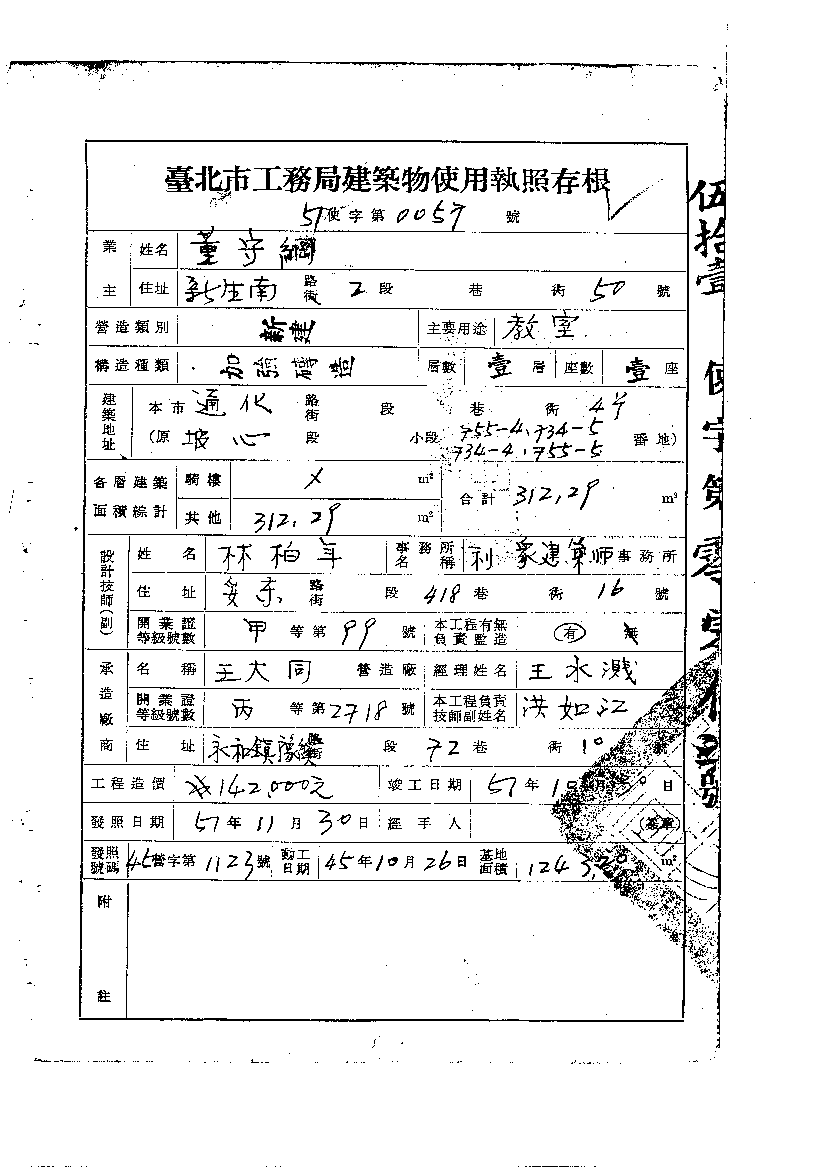 臺北市工務局建築物使用執照存根
51使字第0057號
業主 姓名 董守綱
住址 新生南路街2段巷衖50號
營造類別 新建 主要用途 教室
構造種類 加強磚造 層數 壹層 座數 壹座
建築地址 本市通化路街段巷衖4号
(原坡心段小段 755-4.734-5 番地)
734-4.755-5
各層建築面積綜計 騎樓 X m² 合計 312.29 m²
其他 312.29 m²
設計技師(副) 姓名 林柏年 事務所名稱 利象建築师事務所
住址 安东路街段418巷衖16號
開業證等級號數 甲等第99號 本工程有無負責監造 有 無
承造廠商 名稱 王大同營造廠 經理姓名 王水濺
開業證等級號數 丙等第2718號 本工程負責技師副姓名 洪如江
住址 永和鎮 路街段72巷衖10號
工程造價 142,000元 竣工日期 51年10月30日
發照日期 51年11月30日 經手人
發照號碼 45營字第1123號 動工日期 45年10月26日 基地面積 1243.20m²
附註
伍拾壹使字第零零伍